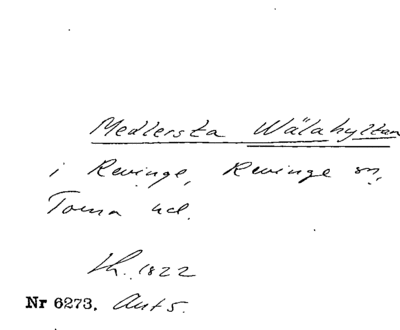 Medlersta Wälahyltan
i Revinge, Revinge sn,
Torna hd.
Lh. 1822
Nr 6273. Ant 5.